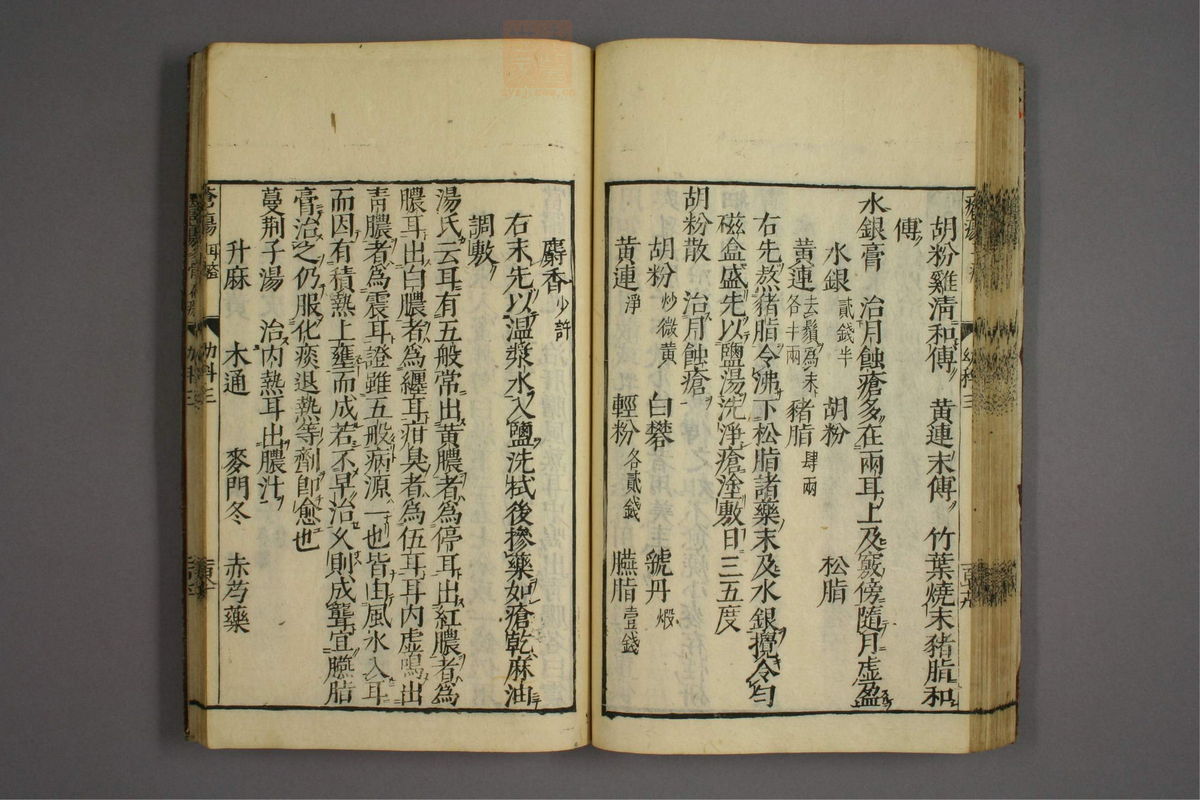 胡粉雞清和傅 黃連末傅 竹葉燒末豬脂和
傅
水銀膏 治月蝕瘡多在兩耳上及竅傍隨月虛盈
水銀貳錢半 胡粉 松脂
黃連去鬚為末各半兩 豬脂肆兩
右先熬豬脂令沸下松脂諸藥末及水銀攪令勻
磁盒盛先以鹽湯洗淨瘡塗敷日三五度
胡粉散 治月蝕瘡
胡粉炒微黃 白礬 虢丹煅
黃連淨 輕粉各貳錢 臙脂壹錢
麝香少許
右末先以温漿水入鹽洗拭後摻藥如瘡乾麻油
調敷
湯氏云耳有五般常出黃膿者為停耳出紅膿者為
膿耳出白膿者為纏耳疳臭者為伍耳耳内虛鳴出
青膿者為震耳證雖五般病源一也皆由風水入耳
而因有積熱上壅而成若不早治久則成聾宜臙脂
膏治之仍服化痰退熱等劑即愈也
蔓荆子湯 治内熱耳出膿汁
升麻 木通 麥門冬 赤芍藥
幼科三